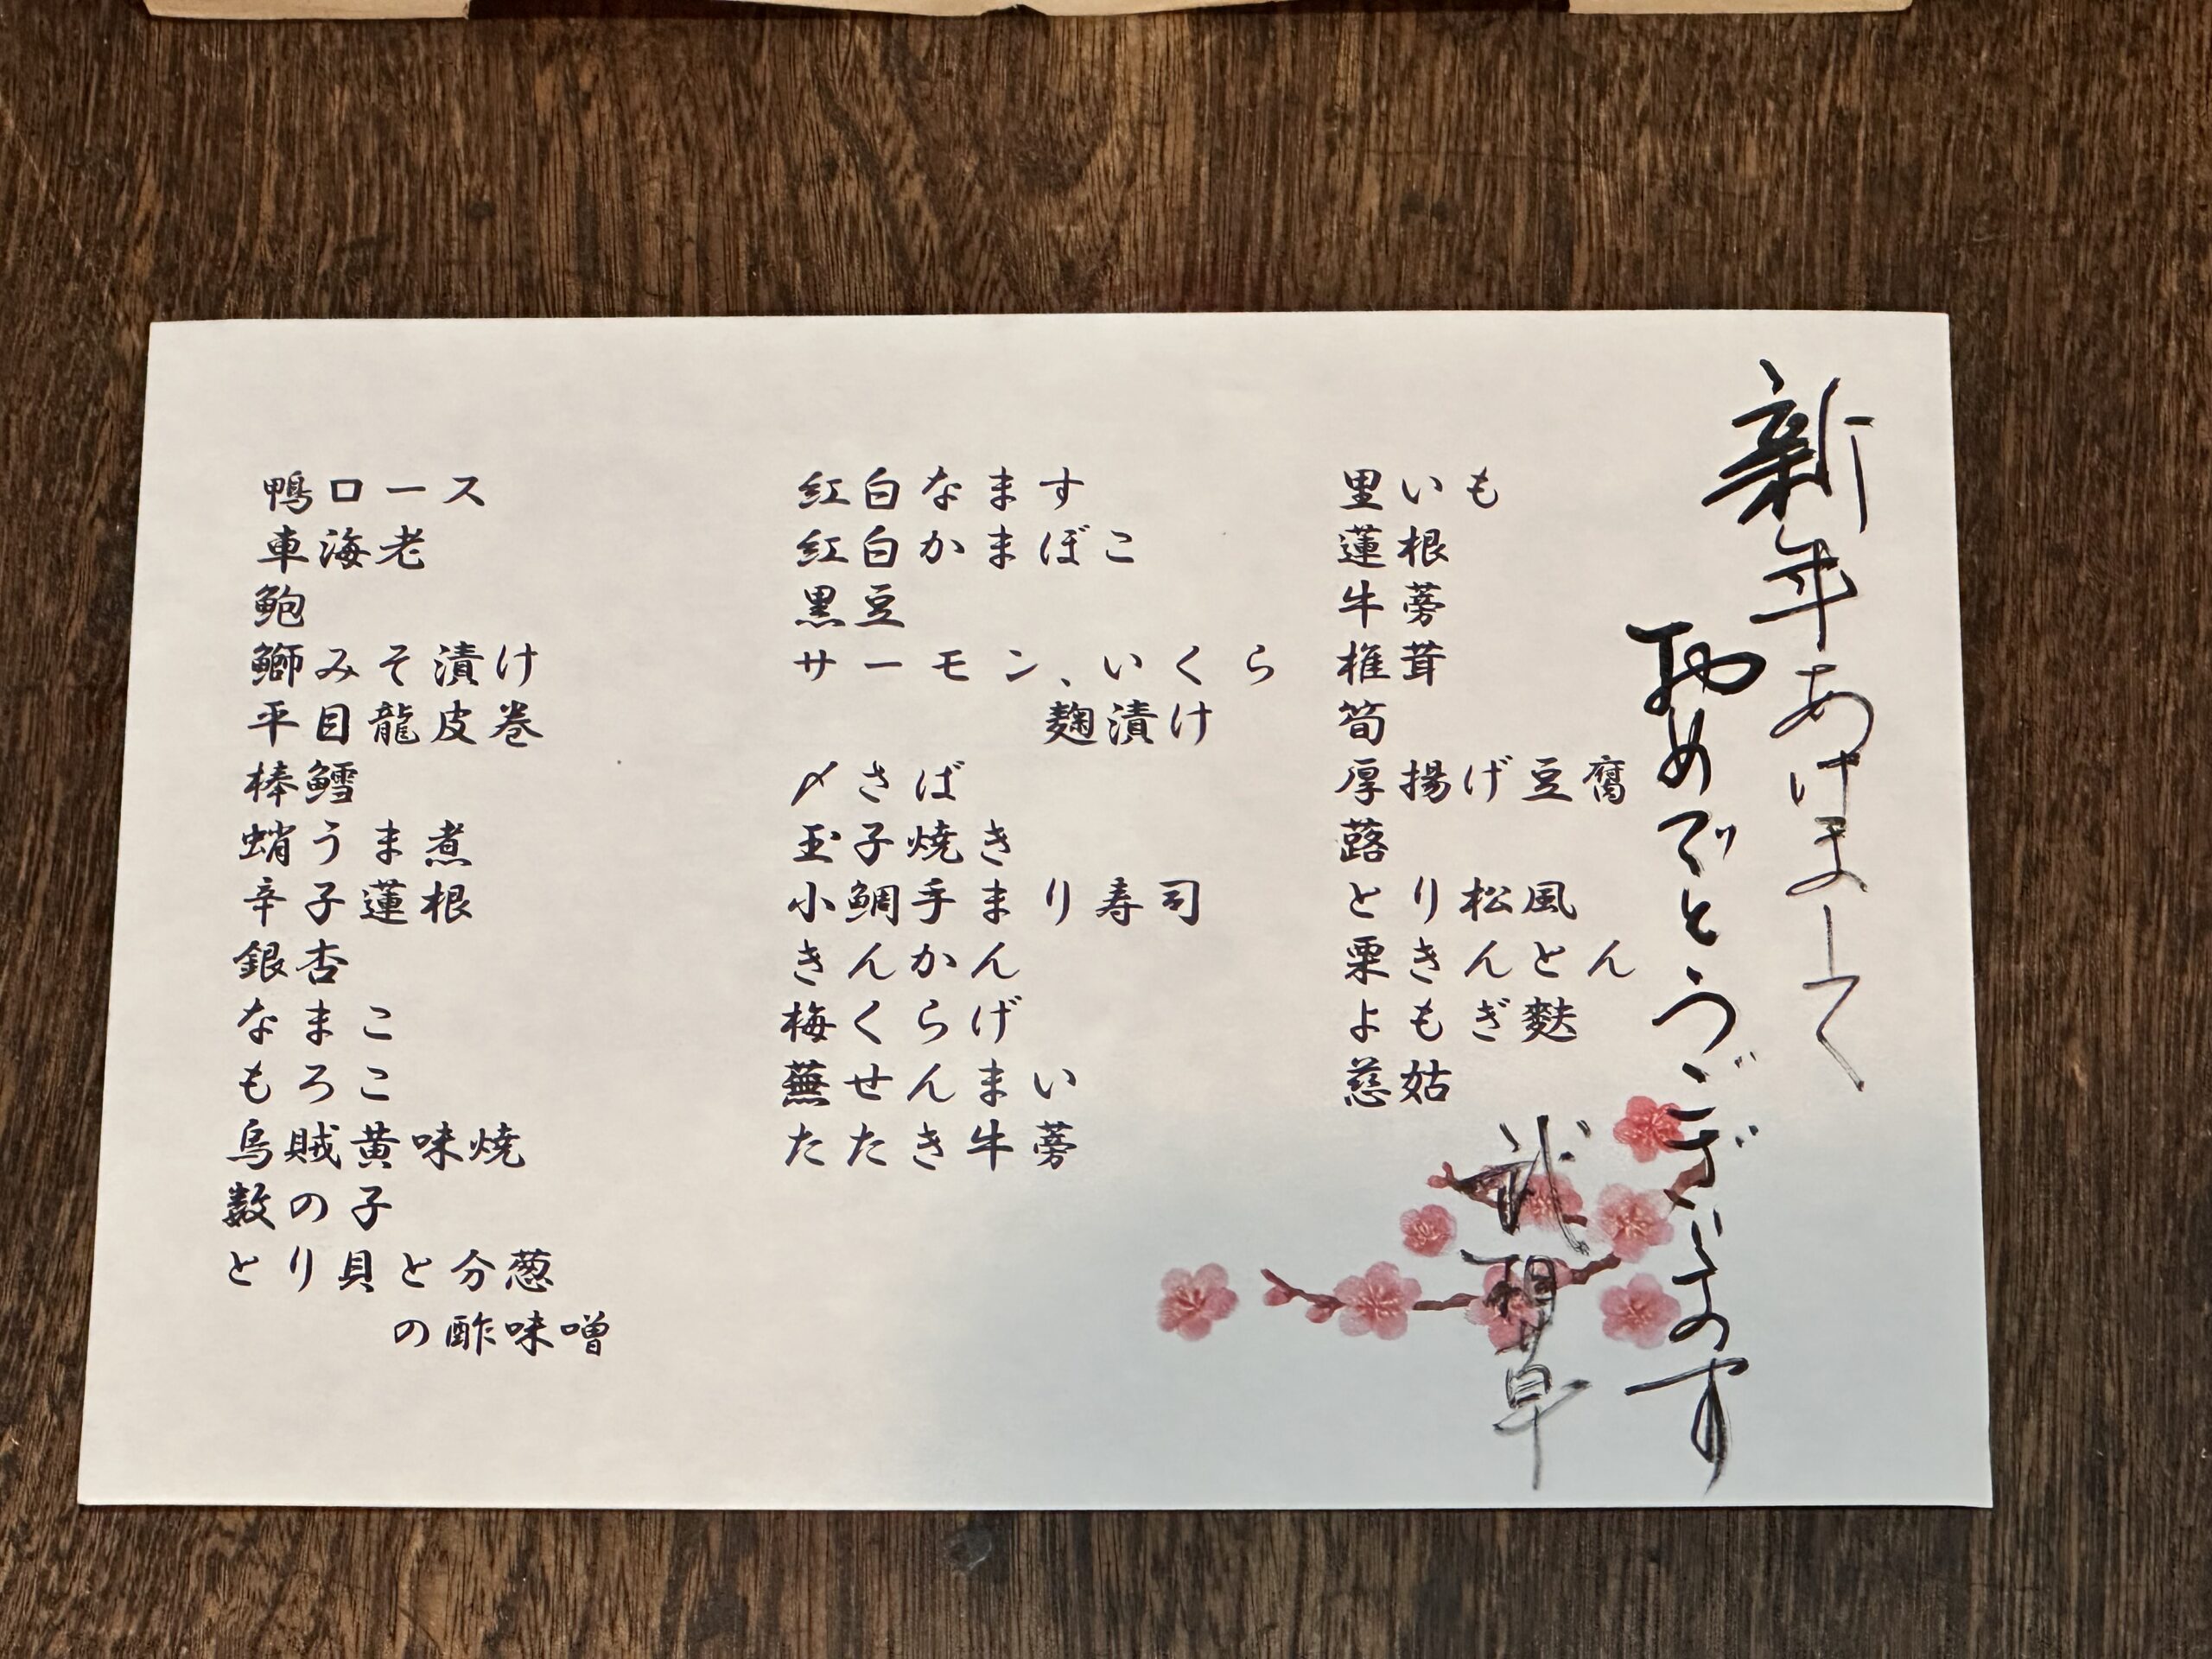 新年あけまして
おめでとうございます
鴨ロース
車海老
鮑
鰤みそ漬け
平目龍皮巻
棒鱈
蛸うま煮
辛子蓮根
銀杏
なまこ
もろこ
烏賊黄味焼
数の子
とり貝と分葱
の酢味噌
紅白なます
紅白かまぼこ
黒豆
サーモン、いくら
麹漬け
〆さば
玉子焼き
小鯛手まり寿司
きんかん
梅くらげ
蕪せんまい
たたき牛蒡
里いも
蓮根
牛蒡
椎茸
筍
厚揚げ豆腐
蕗
とり松風
栗きんとん
よもぎ麩
慈姑